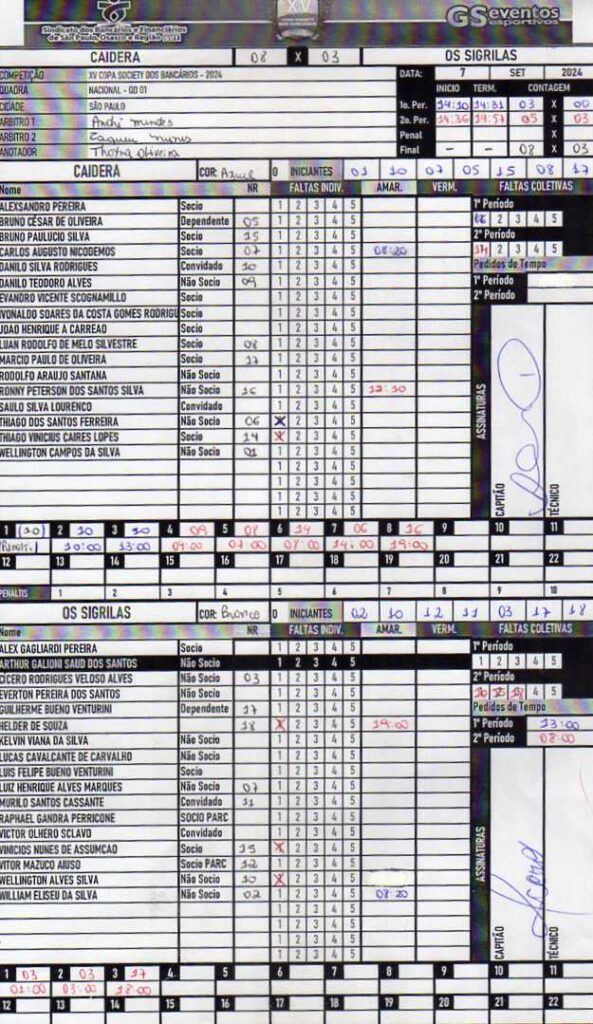 Sindicato dos Bancários e Financiários
de São Paulo, Osasco e Região
XV
GSeventos
esportivos
CAIDERA 08 X 03 OS SIGRILAS
COMPETIÇÃO XV COPA SOCIETY DOS BANCÁRIOS - 2024 DATA: 7 SET 2024
QUADRA NACIONAL - QD 01 INICIO TERM. CONTAGEM
CIDADE SÃO PAULO 1o. Per. 14:10 14:31 03 X 00
ARBITRO 1 André mendes 2o. Per. 14:36 14:57 05 X 03
ARBITRO 2 nunes Penal X
ANOTADOR oliveira Final - - 08 X 03
CAIDERA COR: Azul 0 INICIANTES 01 10 07 05 15 08 17
Nome NR FALTAS INDIV. AMAR. VERM. FALTAS COLETIVAS
ALEXSANDRO PEREIRA Socio 1 2 3 4 5 1º Período
BRUNO CÉSAR DE OLIVEIRA Dependente 05 1 2 3 4 5 2 3 4 5
BRUNO PAULUCIO SILVA Socio 15 1 2 3 4 5 2º Período
CARLOS AUGUSTO NICODEMOS Socio 07 1 2 3 4 5 08:20 14 2 3 4 5
DANILO SILVA RODRIGUES Convidado 10 1 2 3 4 5 Pedidos de Tempo
DANILO TEODORO ALVES Não Socio 09 1 2 3 4 5 1º Período
EVANDRO VICENTE SCOGNAMILLO Socio 1 2 3 4 5 2º Período
IVONALDO SOARES DA COSTA GOMES RODRIGU Socio 1 2 3 4 5
JOAO HENRIQUE A CARREAO Socio 1 2 3 4 5
LUAN RODOLFO DE MELO SILVESTRE Socio 08 1 2 3 4 5
MARCIO PAULO DE OLIVEIRA Socio 17 1 2 3 4 5
RODOLFO ARAUJO SANTANA Não Socio 1 2 3 4 5
RONNY PETERSON DOS SANTOS SILVA Não Socio 16 1 2 3 4 5 12:10
SAULO SILVA LOURENCO Convidado 1 2 3 4 5
THIAGO DOS SANTOS FERREIRA Não Socio 06 X 2 3 4 5
THIAGO VINICIUS CAIRES LOPES Socio 14 X 2 3 4 5
WELLINGTON CAMPOS DA SILVA Não Socio 01 1 2 3 4 5
1 2 3 4 5
1 2 3 4 5
1 2 3 4 5
1 2 3 4 5
ASSINATURAS
CAPITÃO
TÉCNICO
1 (10) 2 10 3 10 4 09 5 08 6 14 7 06 8 16 9 10 11
10:00 13:00 04:00 07:00 08:00 14:00 19:00
12 13 14 15 16 17 18 19 20 21 22
PENALTIS 1 2 3 4 5 6 7 8 9 10
OS SIGRILAS COR: Branco 0 INICIANTES 02 10 12 11 03 17 18
Nome NR FALTAS INDIV. AMAR. VERM. FALTAS COLETIVAS
ALEX GAGLIARDI PEREIRA Socio 1 2 3 4 5 1º Período
ARTHUR GALIONI SAUD DOS SANTOS Não Socio 1 2 3 4 5 1 2 3 4 5
CÍCERO RODRIGUES VELOSO ALVES Não Socio 03 1 2 3 4 5 2º Período
EVERTON PEREIRA DOS SANTOS Não Socio 1 2 3 4 5 10 15 18 4 5
GUILHERME BUENO VENTURINI Dependente 17 1 2 3 4 5 Pedidos de Tempo
HELDER DE SOUZA 18 X 2 3 4 5 19:00 1º Período 13:00
KELVIN VIANA DA SILVA Não Socio 1 2 3 4 5 2º Período 08:00
LUCAS CAVALCANTE DE CARVALHO Não Socio 1 2 3 4 5
LUIS FELIPE BUENO VENTURINI Socio 1 2 3 4 5
LUIZ HENRIQUE ALVES MARQUES Não Socio 07 1 2 3 4 5
MURILO SANTOS CASSANTE Convidado 11 1 2 3 4 5
RAPHAEL GANDRA PERRICONE SOCIO PARC 1 2 3 4 5
VICTOR OLHERO SCLAVO Convidado 1 2 3 4 5
VINICIOS NUNES DE ASSUMCAO Socio 15 X 2 3 4 5
VITOR MAZUCO AIUSO Socio PARC 12 1 2 3 4 5
WELLINGTON ALVES SILVA Não Socio 10 X 2 3 4 5
WILLIAM ELISEU DA SILVA Não Socio 02 1 2 3 4 5 08:20
1 2 3 4 5
1 2 3 4 5
1 2 3 4 5
1 2 3 4 5
ASSINATURAS
CAPITÃO
TÉCNICO
1 03 2 03 3 17 4 5 6 7 8 9 10 11
01:00 03:00 18:00
12 13 14 15 16 17 18 19 20 21 22